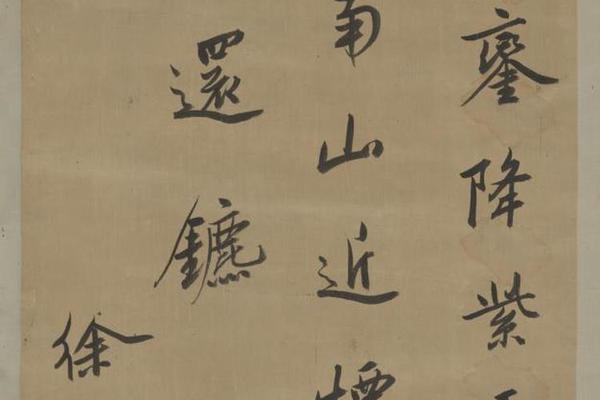 銮降紫
南山近
還鑣
徐